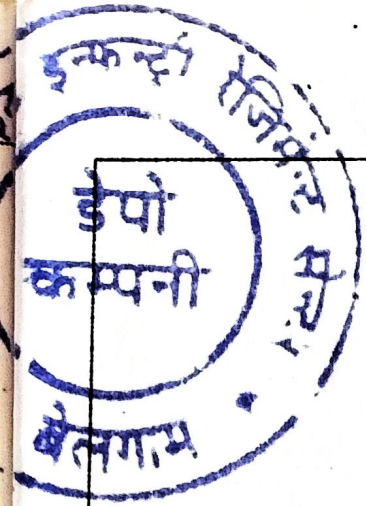 इन्फन्ट्री रेजिमेन्ट सेन्टर
डेपो
कम्पनी
बेलगाम